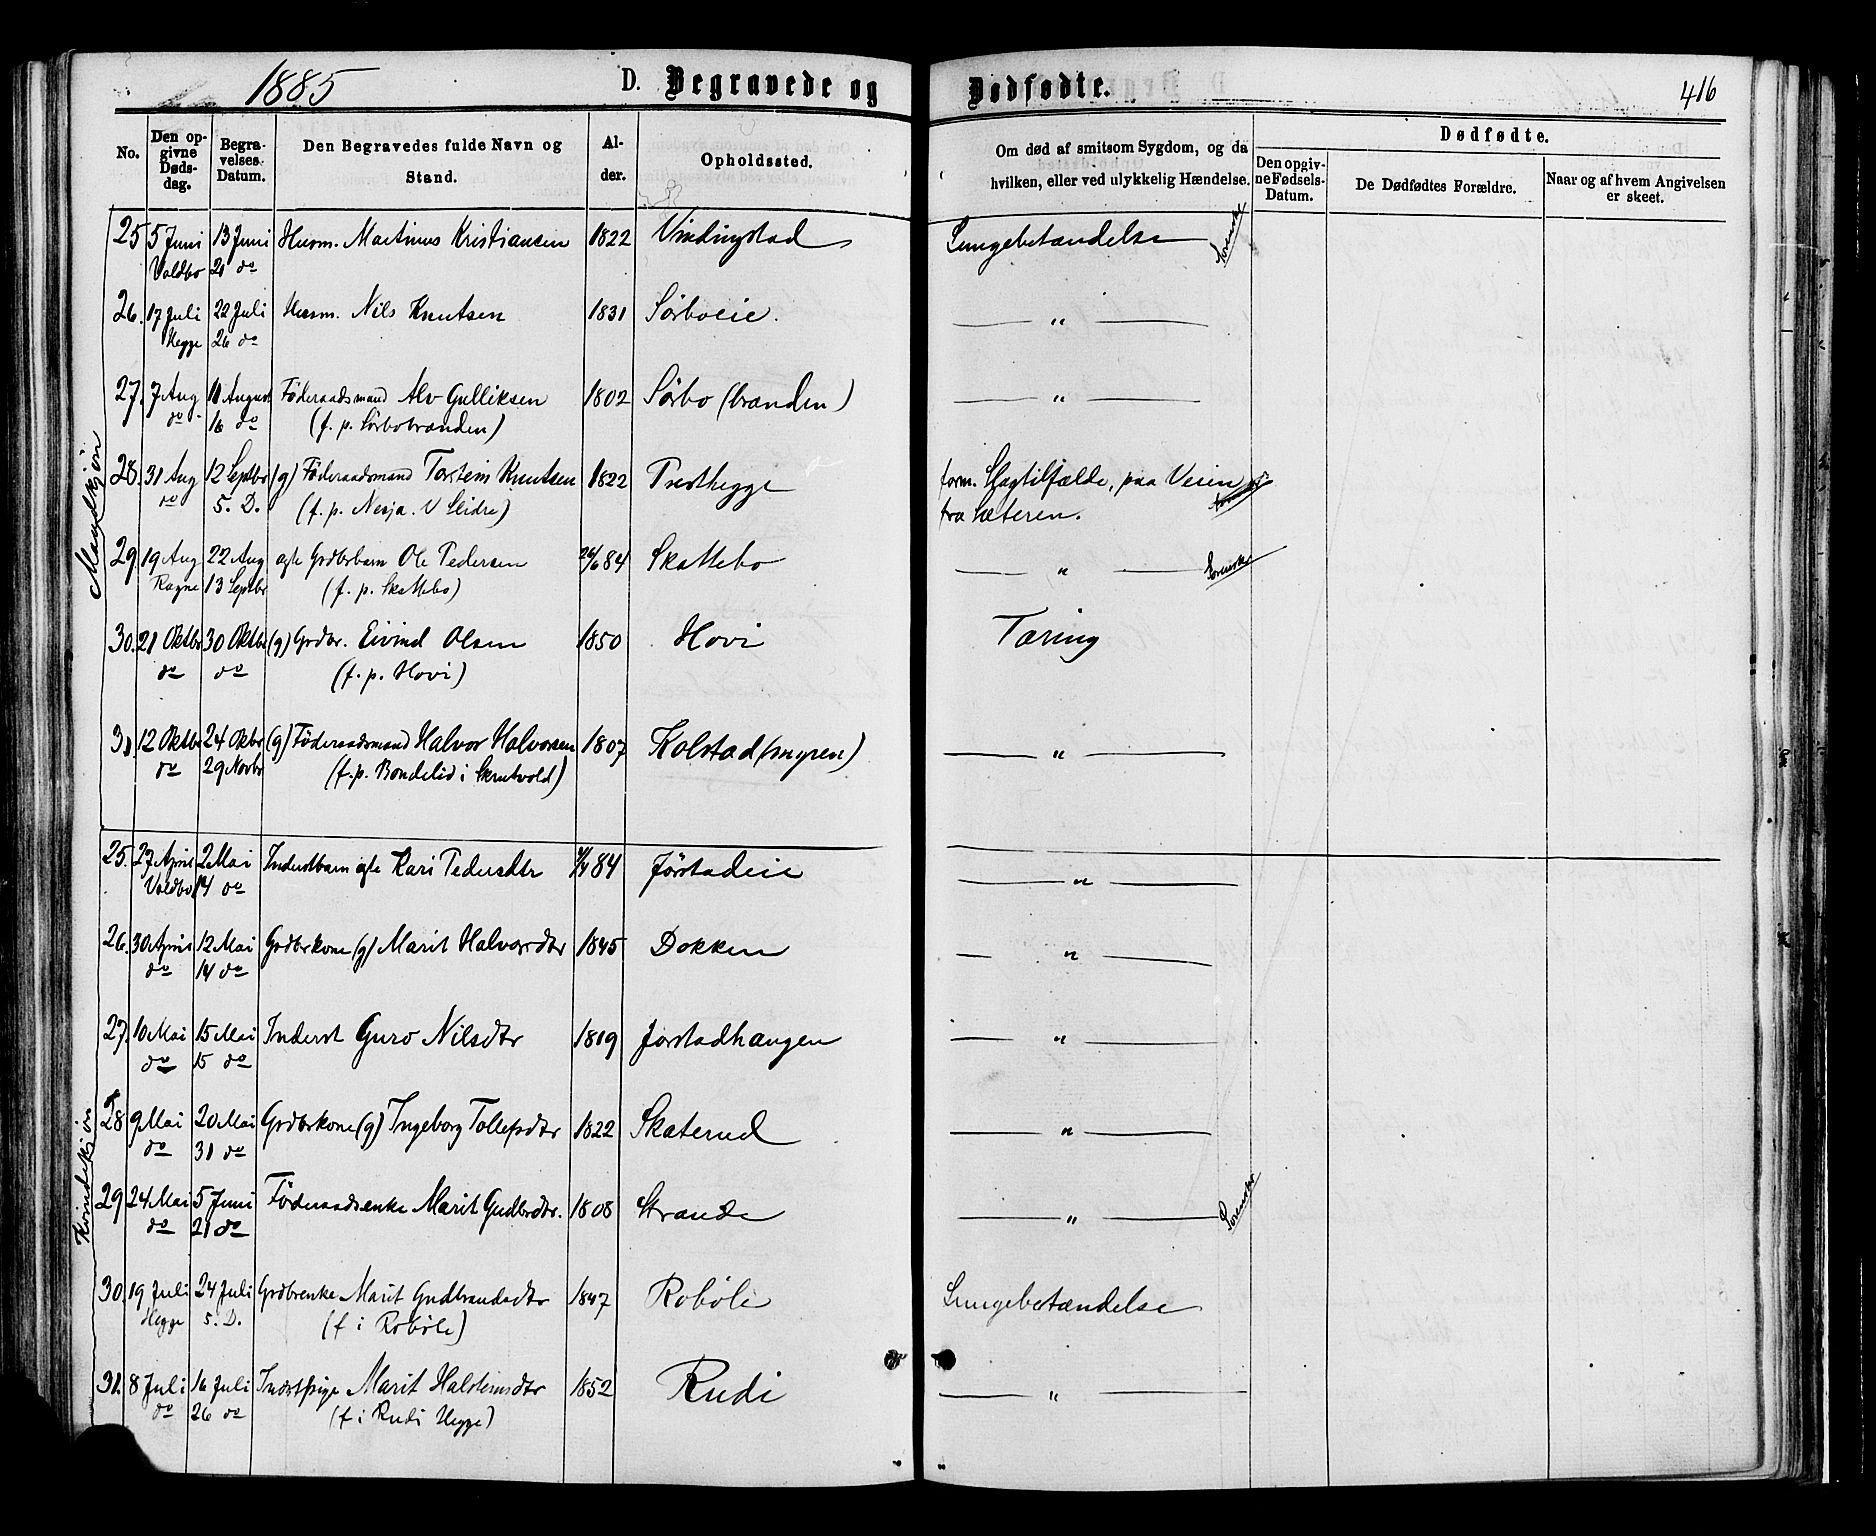 1885 D. Begravede og Dødfødte. 416
No. Den opgivne Dødsdag. Begravelses Datum. Den Begravedes fulde Navn og Stand. Alder. Opholdssted. Om død af smitsom Sygdom, og da hvilken, eller ved ulykkelig Hændelse. Dødfødte. Den opgivne Fødsels-Datum. De Dødfødtes Forældre. Naar og af hvem Angivelsen er skeet.
Mandkjøn
25 5 Juni 13 Juni Husm. Martinus Kristiansen 1822 Vindingstad Lungebetændelse
Voldbo 21 do
26. 17 Juli 22 Juli Husm. Nils Knutsen 1831 Sørboeie. — " —
Hegge 26 do
27. 7 Aug 11 August Föderaadsmand Alv Gulliksen 1802 Sørbo (branden) — " —
do 16 do (f. p. Sørbobranden)
28. 31 Aug 12 Septbr (g) Föderaadsmand Torstein Knutsen 1822 Presthegge form. Slagtilfælde, paa Veien
do 5. D. (f. p. Nesja. V Slidre) fra Sæteren.
29 19 Aug 22 Aug ægte Grdbrbarn Ole Pedersen 84 Skattebo — " —
Rogne 13 Septbr (f. p. Skattebo)
30. 21 Oktbr 30 Oktbr (g) Grdbr. Eivind Olsen 1850 Hovi Tæring
do do (f. p. Hovi)
31. 12 Oktbr 24 Okbr (g) Föderaadsmand Halvor Halvorsen 1807 Kolstad (myren) — " —
do 29 Novbr (f. p. Bondelid i Skrutvold)
Kvindekjön
25. 27 April 2 Mai Inderstbarn ægte Kari Pedersdtr 84 Jörstadeie — " —
Voldbo 14 do
26. 30 April 12 Mai Grdbrkone (g) Marit Halvorsdtr 1845 Dokken — " —
do 14 do
27. 10 Mai 15 Mai Inderst Guro Nilsdtr 1819 Jorstadhaugen — " —
do 15 do
28 9 Mai 20 Mai Grdbrkone (g) Ingeborg Tollefsdtr 1822 Skaterud — " —
do 31 do
29 24 Mai 5 Juni Föderaadsenke Marit Gudbrdtr. 1808 Strande — " —
do 21 do
30. 19 Juli 24 Juli Grdbrenke Marit Gudbrandsdtr 1847 Robøle Lungebetændelse
Hegge 5. D. (f i Robøle)
31. 8 Juli 16 Juli Indstpige Marit Halsteinsdtr 1852 Rudi — " —
do 26 do (f i Rudi Hegge)